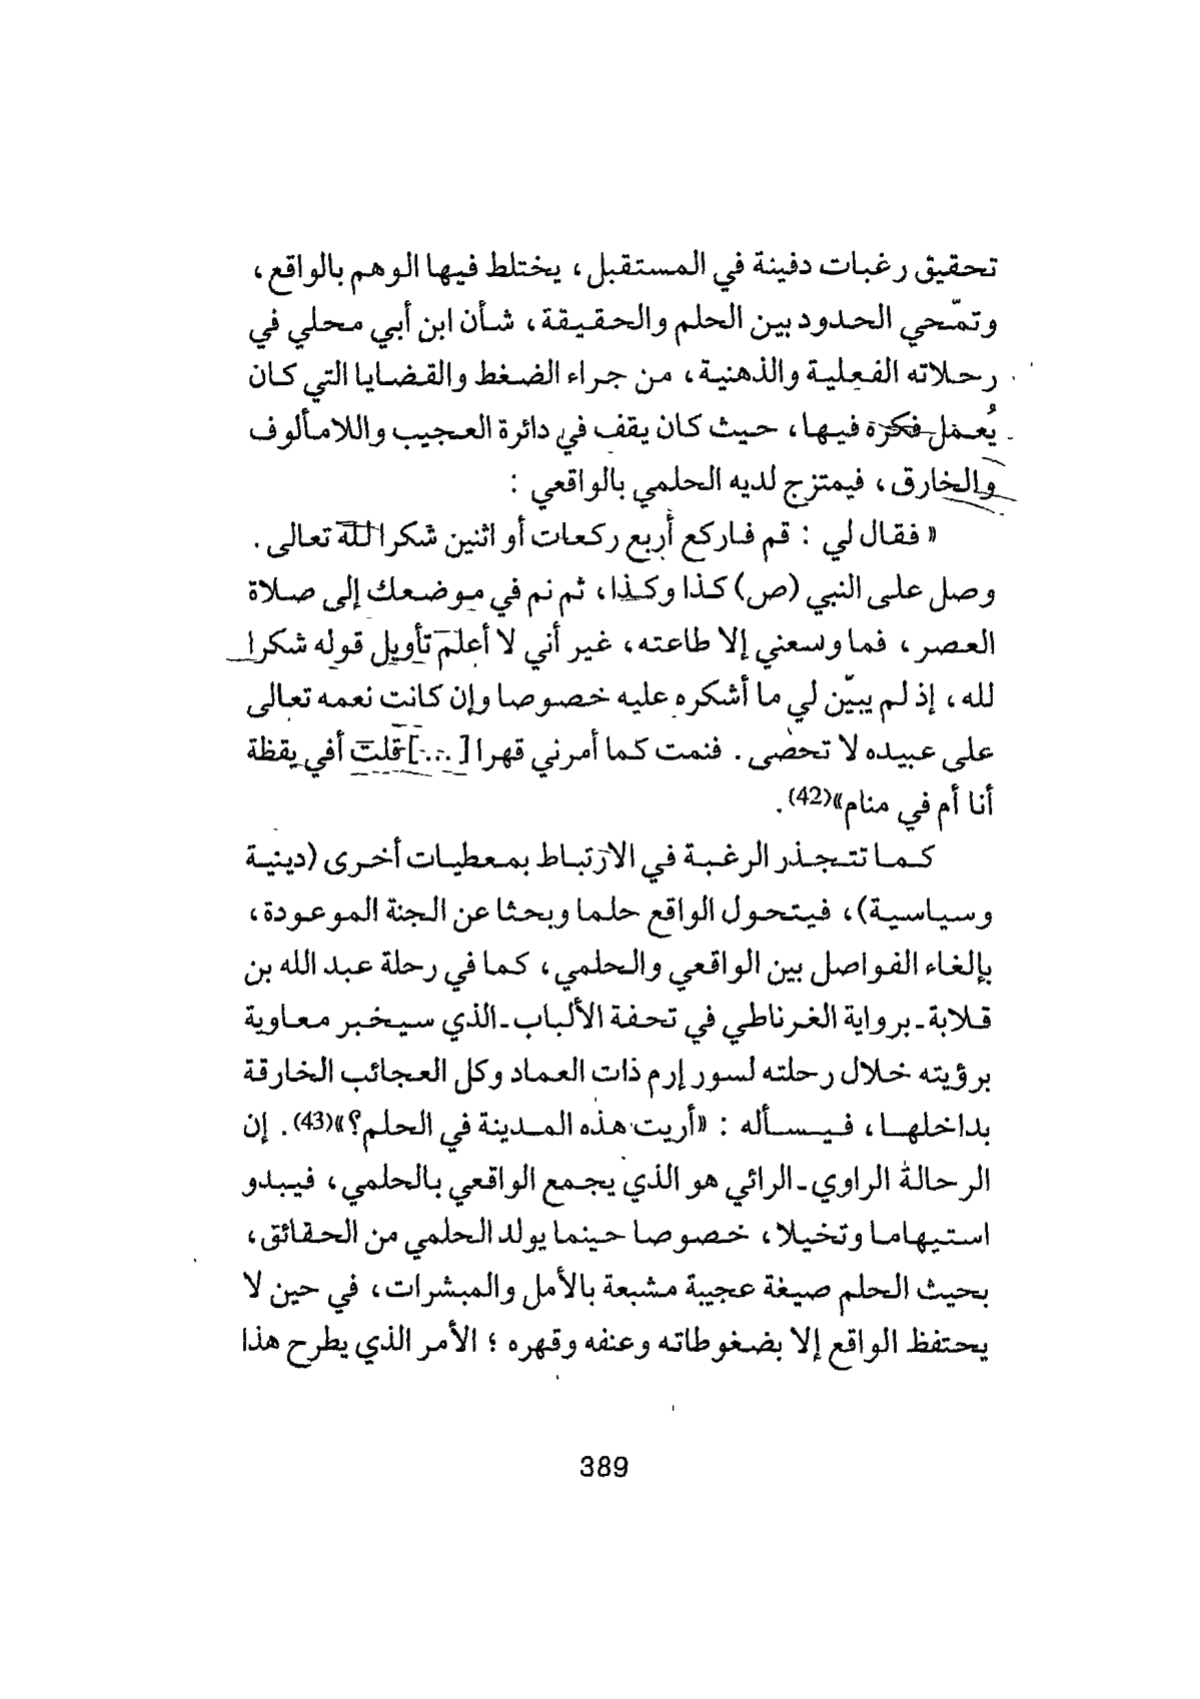 تحقيق رغبات دفينة في المستقبل، يختلط فيها الوهم بالواقع،
وتمّحي الحدود بين الحلم والحقيقة، شأن ابن أبي محلي في
رحلاته الفعلية والذهنية، من جراء الضغط والقضايا التي كان
يُعمل فكره فيها، حيث كان يقف في دائرة العجيب واللامألوف
والخارق، فيمتزج لديه الحلمي بالواقعي :
« فقال لي : قم فاركع أربع ركعات أو اثنين شكرا لله تعالى.
وصل على النبي (ص) كذا وكذا، ثم نم في موضعك إلى صلاة
العصر، فما وسعني إلا طاعته، غير أني لا أعلم تأويل قوله شكرا
لله، إذ لم يبيّن لي ما أشكره عليه خصوصا وإن كانت نعمه تعالى
على عبيده لا تحصى. فنمت كما أمرني قهرا [...] قلت أفي يقظة
أنا أم في منام»(42).
كما تتجذر الرغبة في الارتباط بمعطيات أخرى (دينية
وسياسية)، فيتحول الواقع حلما وبحثا عن الجنة الموعودة،
بإلغاء الفواصل بين الواقعي والحلمي، كما في رحلة عبد الله بن
قلابة ـ برواية الغرناطي في تحفة الألباب ـ الذي سيخبر معاوية
برؤيته خلال رحلته لسور إرم ذات العماد وكل العجائب الخارقة
بداخلها، فيسأله : «أريت هذه المدينة في الحلم؟»(43). إن
الرحالة الراوي ـ الرائي هو الذي يجمع الواقعي بالحلمي، فيبدو
استيهاما وتخيلا، خصوصا حينما يولد الحلمي من الحقائق،
بحيث الحلم صيغة عجيبة مشبعة بالأمل والمبشرات، في حين لا
يحتفظ الواقع إلا بضغوطاته وعنفه وقهره ؛ الأمر الذي يطرح هذا
389